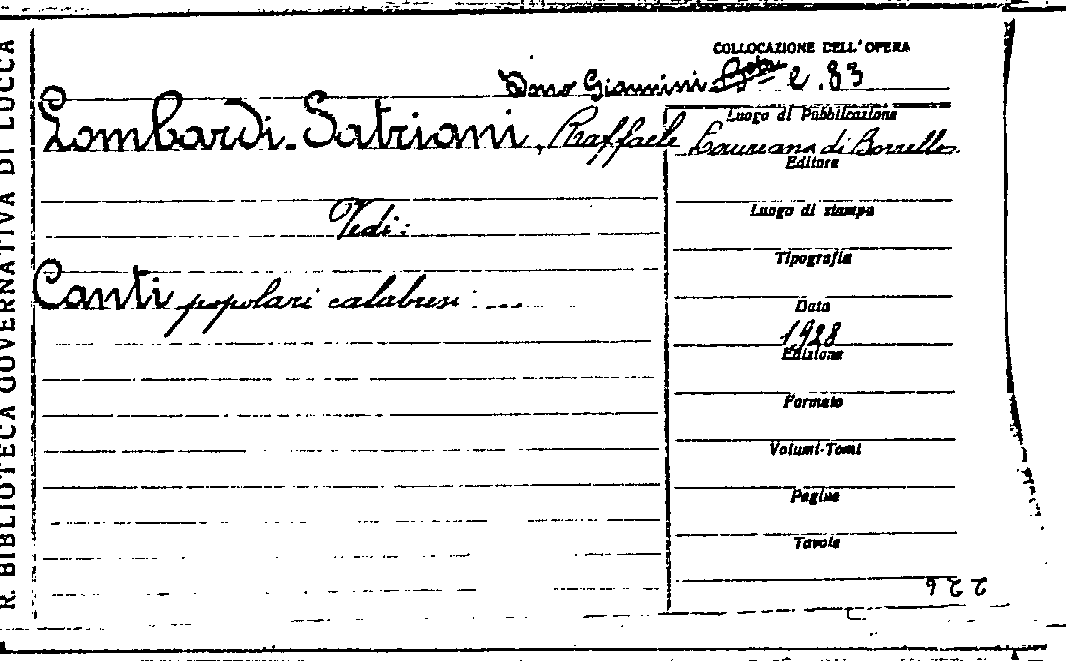 R. BIBLIOTECA GOVERNATIVA DI LUCCA
COLLOCAZIONE DELL'OPERA
Dono Giannini 2.83
Lombardi-Satriani, Raffaele
Luogo di Pubblicazione
Laureana di Borrello
Editore
Vedi:
Luogo di stampa
Tipografia
Canti popolari calabresi: ....
Data
1928
Edizione
Formato
Volumi-Tomi
Pagine
Tavole